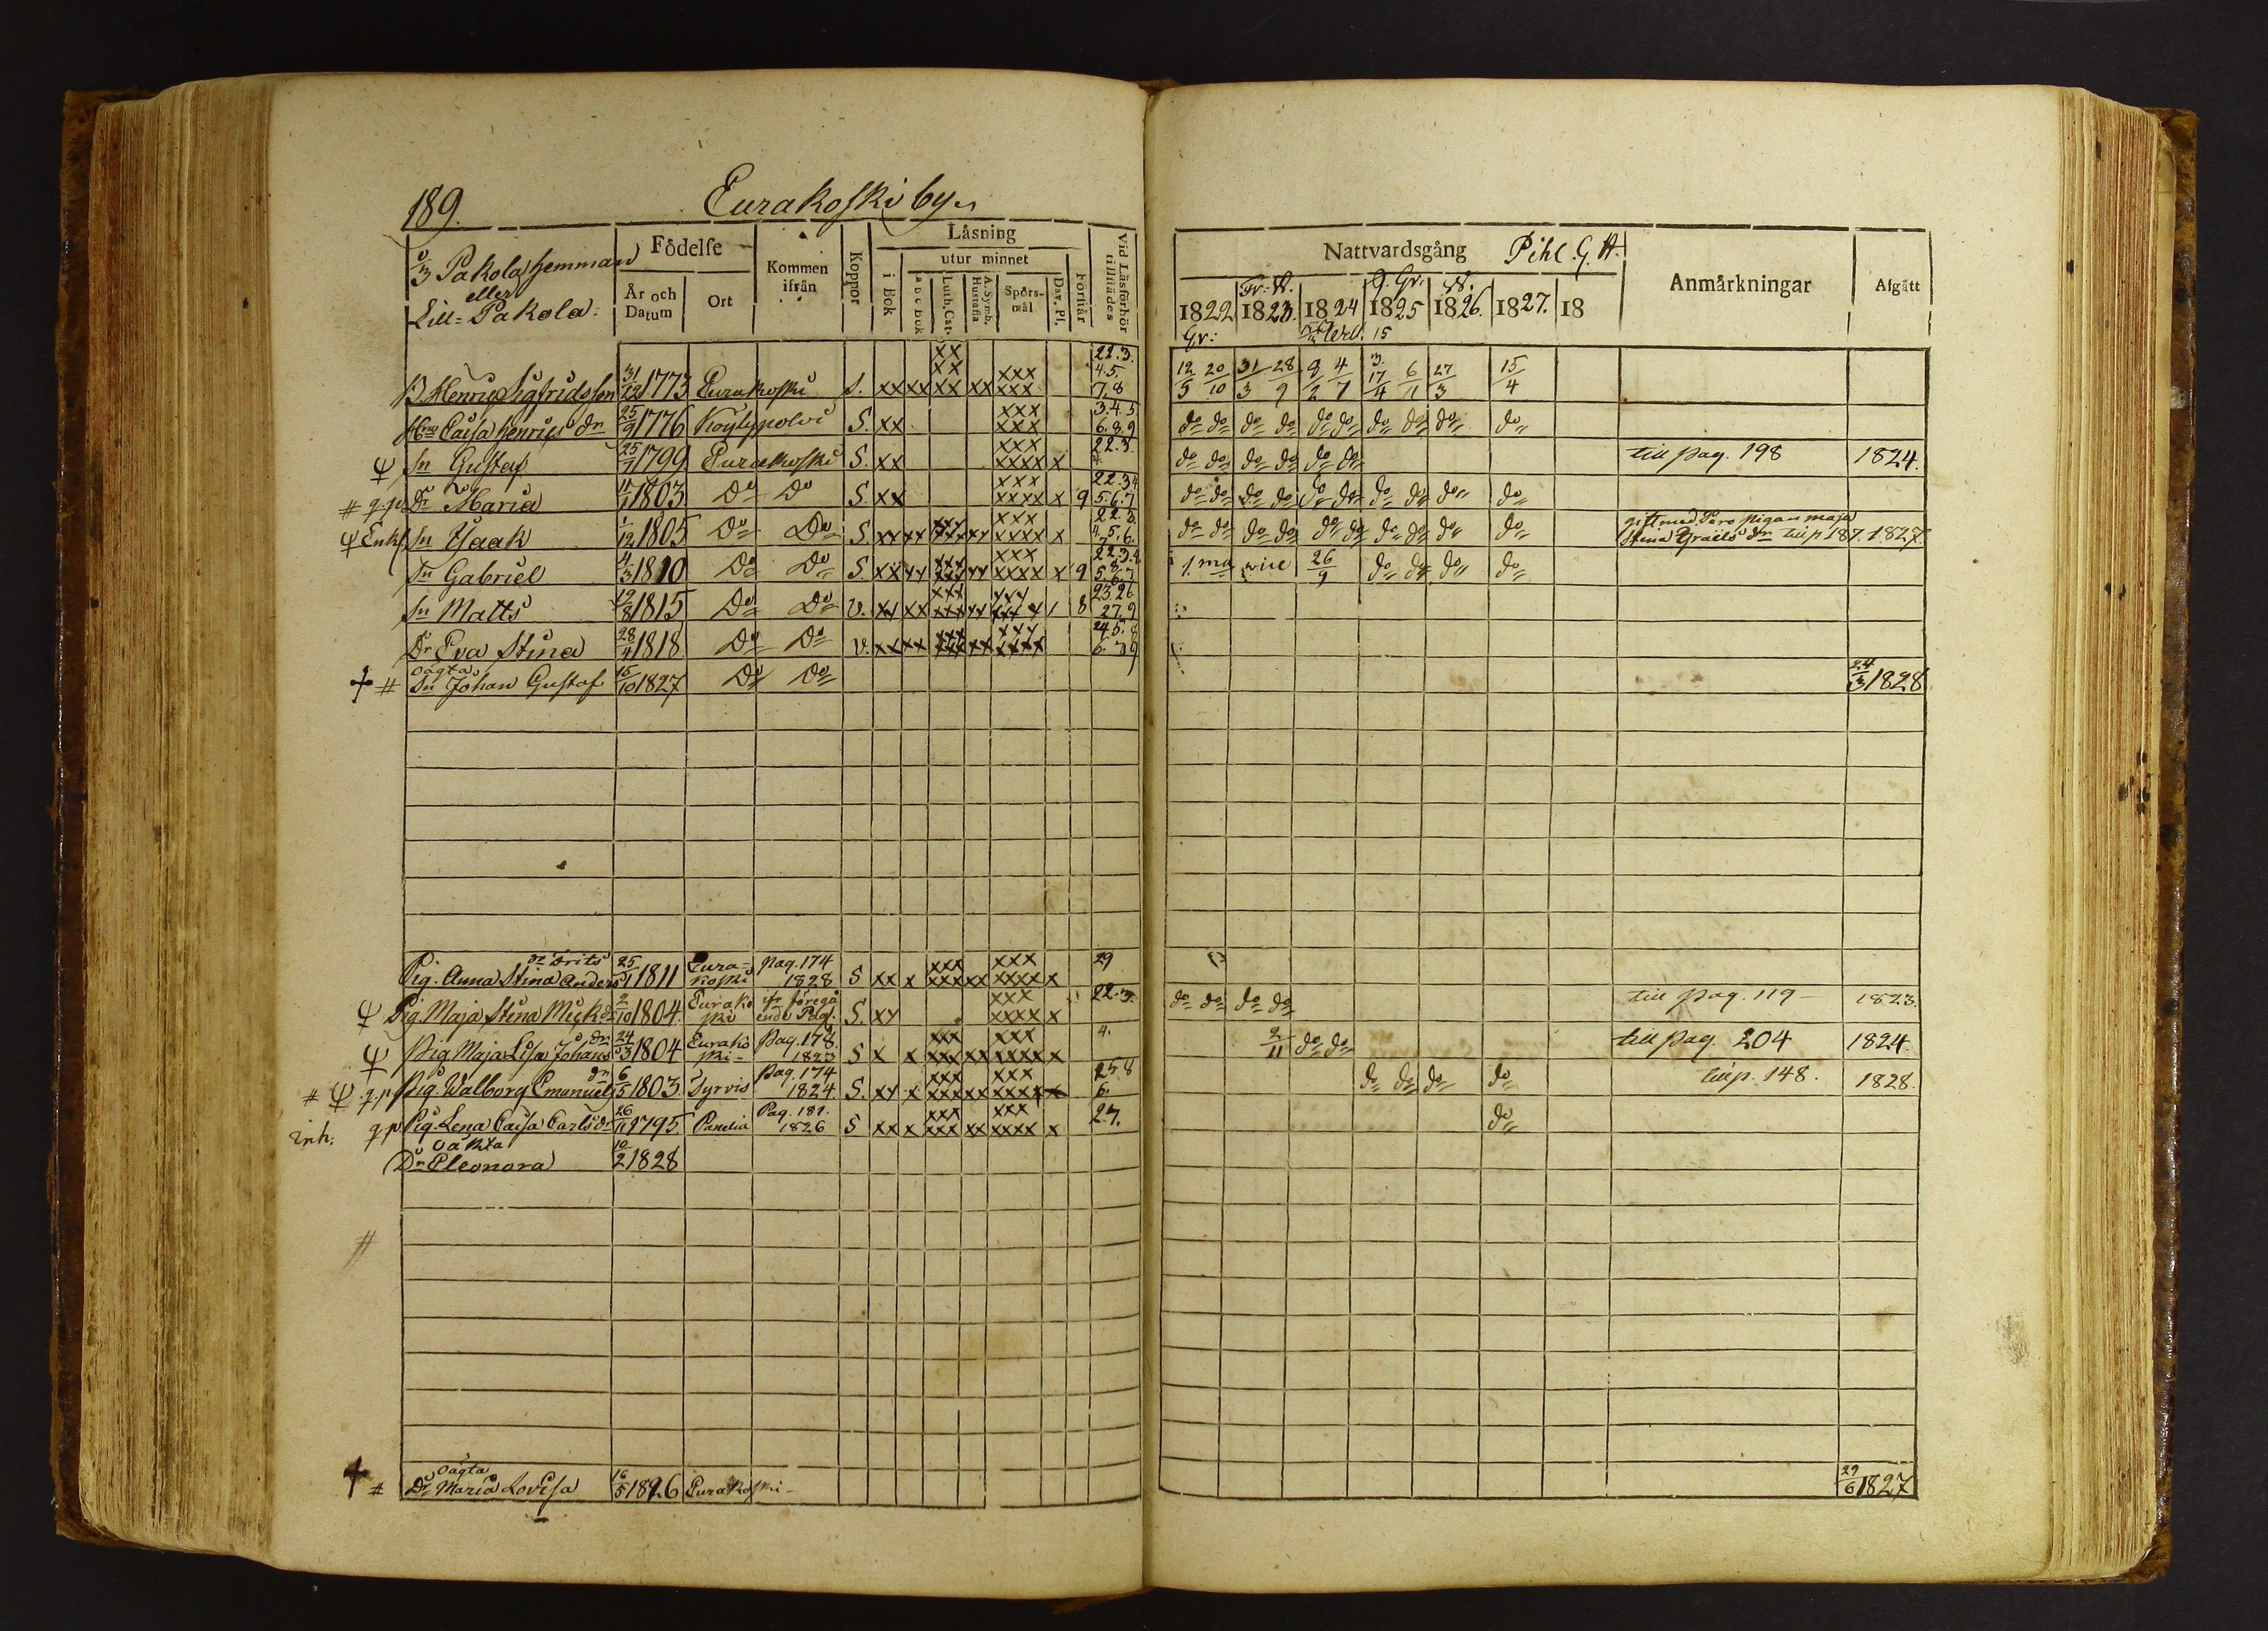 189. Eurakoski by.
Pakola hemman
eller
Lill-Pakola.
Födelse
År och Datum
Ort
Kommen ifrån
Koppor
Låsning
utur minnet
i Bok
a b c Bok
Luth. Cat.
A. Symb. Hustafla
Spörsmål
Dav. Ps.
Förstår
Vid Läsförhör tillstädes
B Henric Sigfridsson 31/12 1773 Eurakoski S. xx xx xx xx xx xxx xxx 22.3. 4.5. 7.8
Hru Caisa Henrics dr 25/9 1776 Köylypolvi S. xx xxx xxx 3.4.5 6.8.9
Sn Gustaf 25/7 1799 Eurakoski S. xx xxx xxxx x 22.3. 4
# q.p. Dr Maria 1803 Do Do S xx xxx xxxx x 9 22.3.4 5.6.7
Enkl. Sn Isaak 1/12 1805 Do Do S. xx xx xxx xxx xx xxx xxxx x 22.3. 4.5.6.
Sn Gabriel 4/3 1810 Do Do S. xx xx xxx xxx xx xxx xxxx x 9 22.3.4 5.6.7
Sn Matts 19/8 1815 Do Do V. xx xx xxx xxx xx 8 23.26 27.9
Dr Eva Stina 28/4 1818 Do Do V. xx xx xxx xxx xx xxx xxxx 24.5.8 6.7.9
oägta
# Sn Johan Gustaf 15/10 1827 Do Do
Pig. Anna Stina Anders dr 25/1 1811 Eurakoski pag. 174 1828 S xx x xxx xxxxx xxx xxxxx x 29
Pig. Maja Stina Mick dr 2/10 1804. Eurakoski föregående Pag. S. xx xxx xxxx x 22.3.
Pig Maja Lisa Johans dr 24/3 1804 Eurakoski Pag. 178. 1823 S x x xxx xxx xx xxx xxxx x 4.
# q.p. Pig. Walborg Emanuels dr 6/5 1803. Syrvis Pag. 174 1824. S. xx x xxx xxx xx xxx xxxx x 25.8 6.
inh. q.p. Pig. Lena Caisa Carls dr 26/11 1795 Panelia Pag. 181. 1826 S xx x xxx xxx xx xxx xxxx x 27.
oäkta
Dr Eleonora 10/2 1828
#
oägta
# Dr Maria Lovisa 16/5 1826 Eurakoski
Nattvardsgång Pihl. G. A.
Anmärkningar
Afgått
Fr: A. G. Gr. A.
1822 1823. 1824 1825 1826. 1827. 18
Gr:
12/5 20/10 31/3 28/9 8/2 4/7 17/4 6/11 27/3 15/4
do do do do do do do do do do
do do do do do do till pag. 198 1824.
do do do do do do do do do do
do do do do do do do do do do gift med Päro pigan Maja Stina Graels dr till p 187. 1827.
1. ma vice 26/9 do do do do
24/3 1828
do do do do till pag. 119 1823.
9/11 do do till pag. 204 1824.
do do do do till p. 148. 1828.
do
29/6 1827